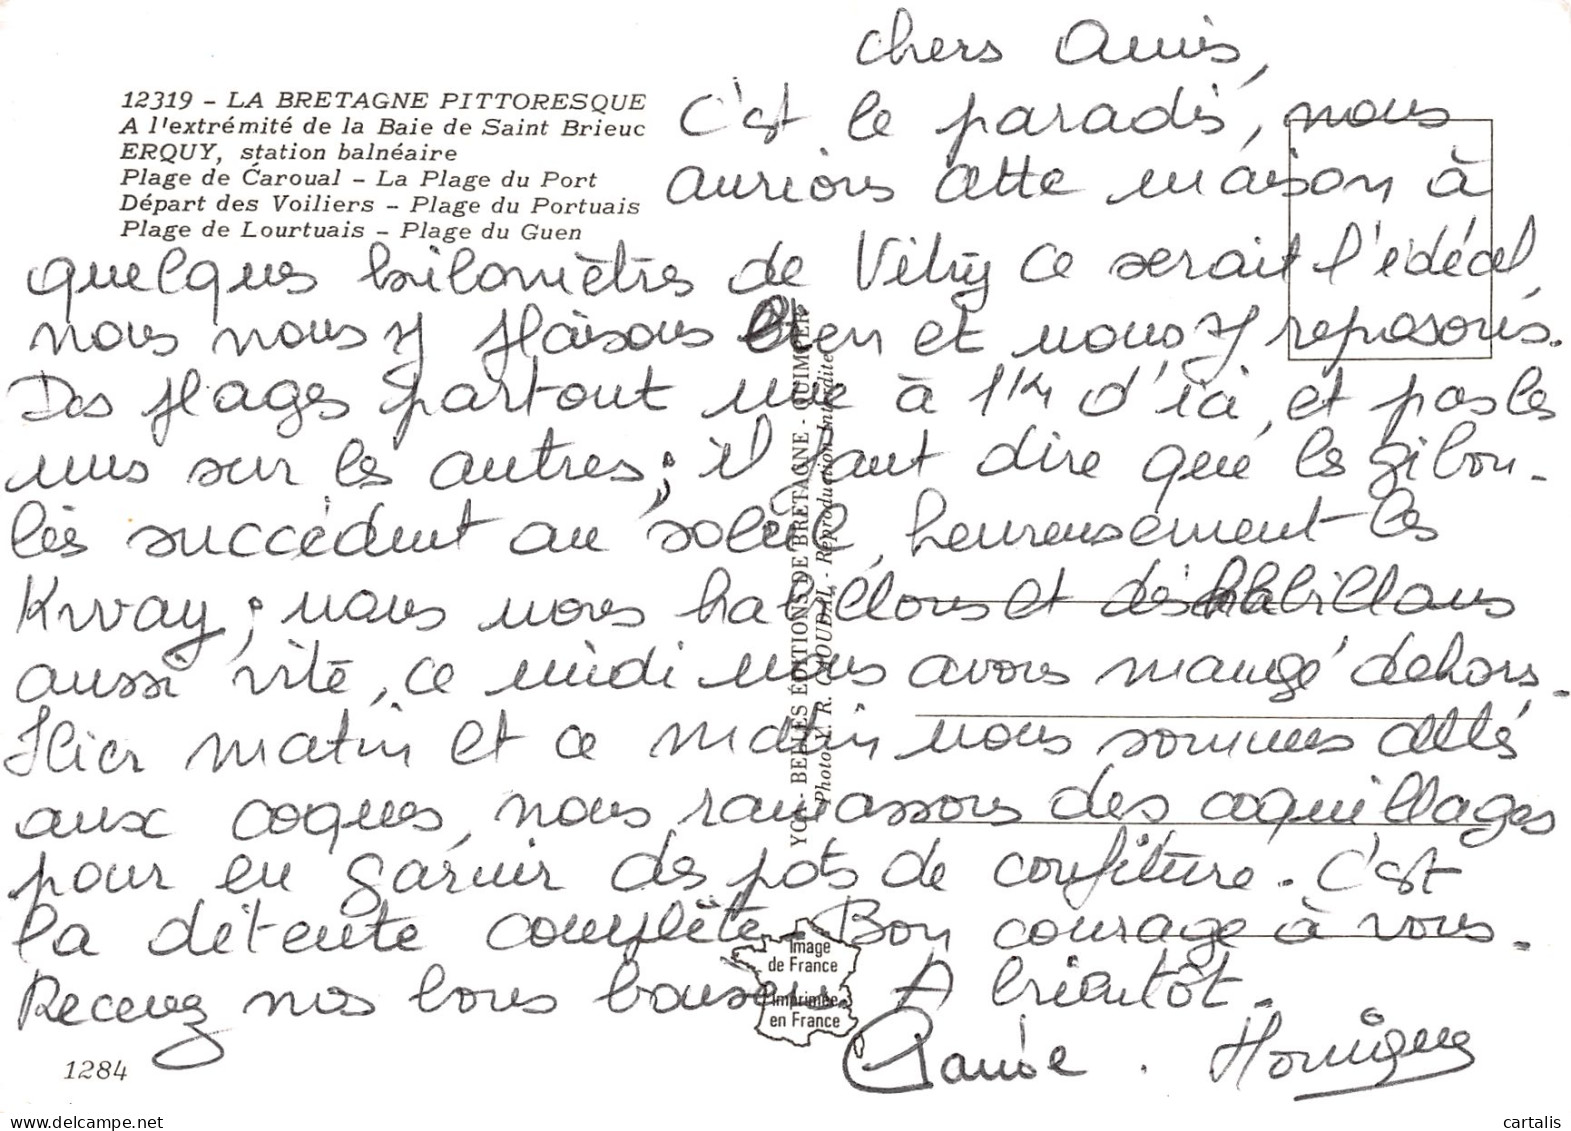 chers Amis,
12319 - LA BRETAGNE PITTORESQUE
A l'extrémité de la Baie de Saint Brieuc
ERQUY, station balnéaire
Plage de Caroual - La Plage du Port
Départ des Voiliers - Plage du Portuais
Plage de Lourtuais - Plage du Guen
C'est le paradis, nous
aurions cette maison à
quelques kilomètres de Vitry ce serait l'idéal,
nous nous y plaisons bien et nous y reposons.
Des plages partout une à 1 km d'ici, et pas les
unes sur les autres; il faut dire que les gibou-
lées succèdent au soleil, heureusement les
Kway; nous nous habillons et déshabillons
aussi vite, ce midi nous avons mangé dehors.
Hier matin et ce matin nous sommes allés
aux coques, nous ramassons des coquillages
pour en garnir des pots de confiture. C'est
la détente complète. Bon courage à vous.
Recevez nos bons baisers. A bientôt.
YCA - BELLES EDITIONS DE BRETAGNE - QUIMPER
Photo Y. R. CAOUDAL - Reproduction Interdite
Image
de France
Imprimée
en France
1284
cartalis